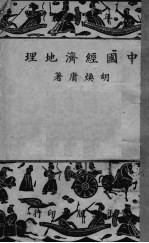 中國經濟地理
胡煥庸著